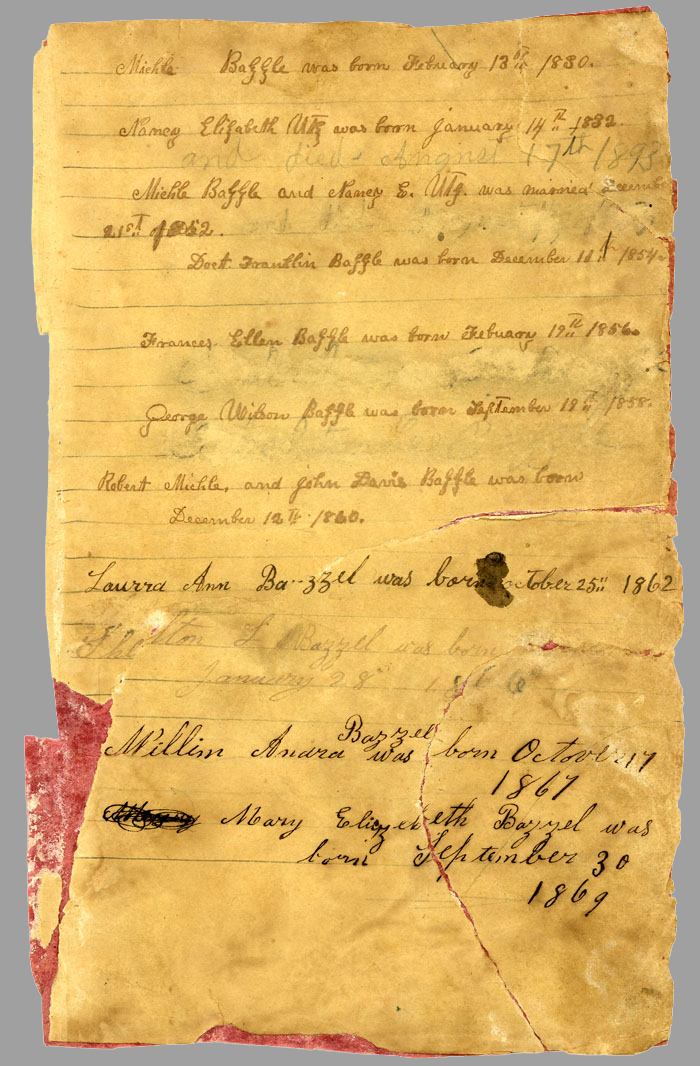 Michle Baffle was born Febuary 13th 1830.
Nancy Elifabeth Utz was born January 14th 1832.
and died August 17th 1893
Michle Baffle and Nancy E. Utz. was married December
21st 1852.
Doct. Franklin Baffle was born December 11th 1854
Frances Ellen Baffle was born Febuary 19th 1856
George Wilson Baffle was born September 19th 1858.
Robert Michle, and John Davis Baffle was born
December 12th 1860.
Laurra Ann Bazzel was born october 25" 1862
Bazzel was born
January 28
Willim Andra Bazzel was born Octover 17
1867
Mary Elizebeth Bazzel was
born September 30
1869